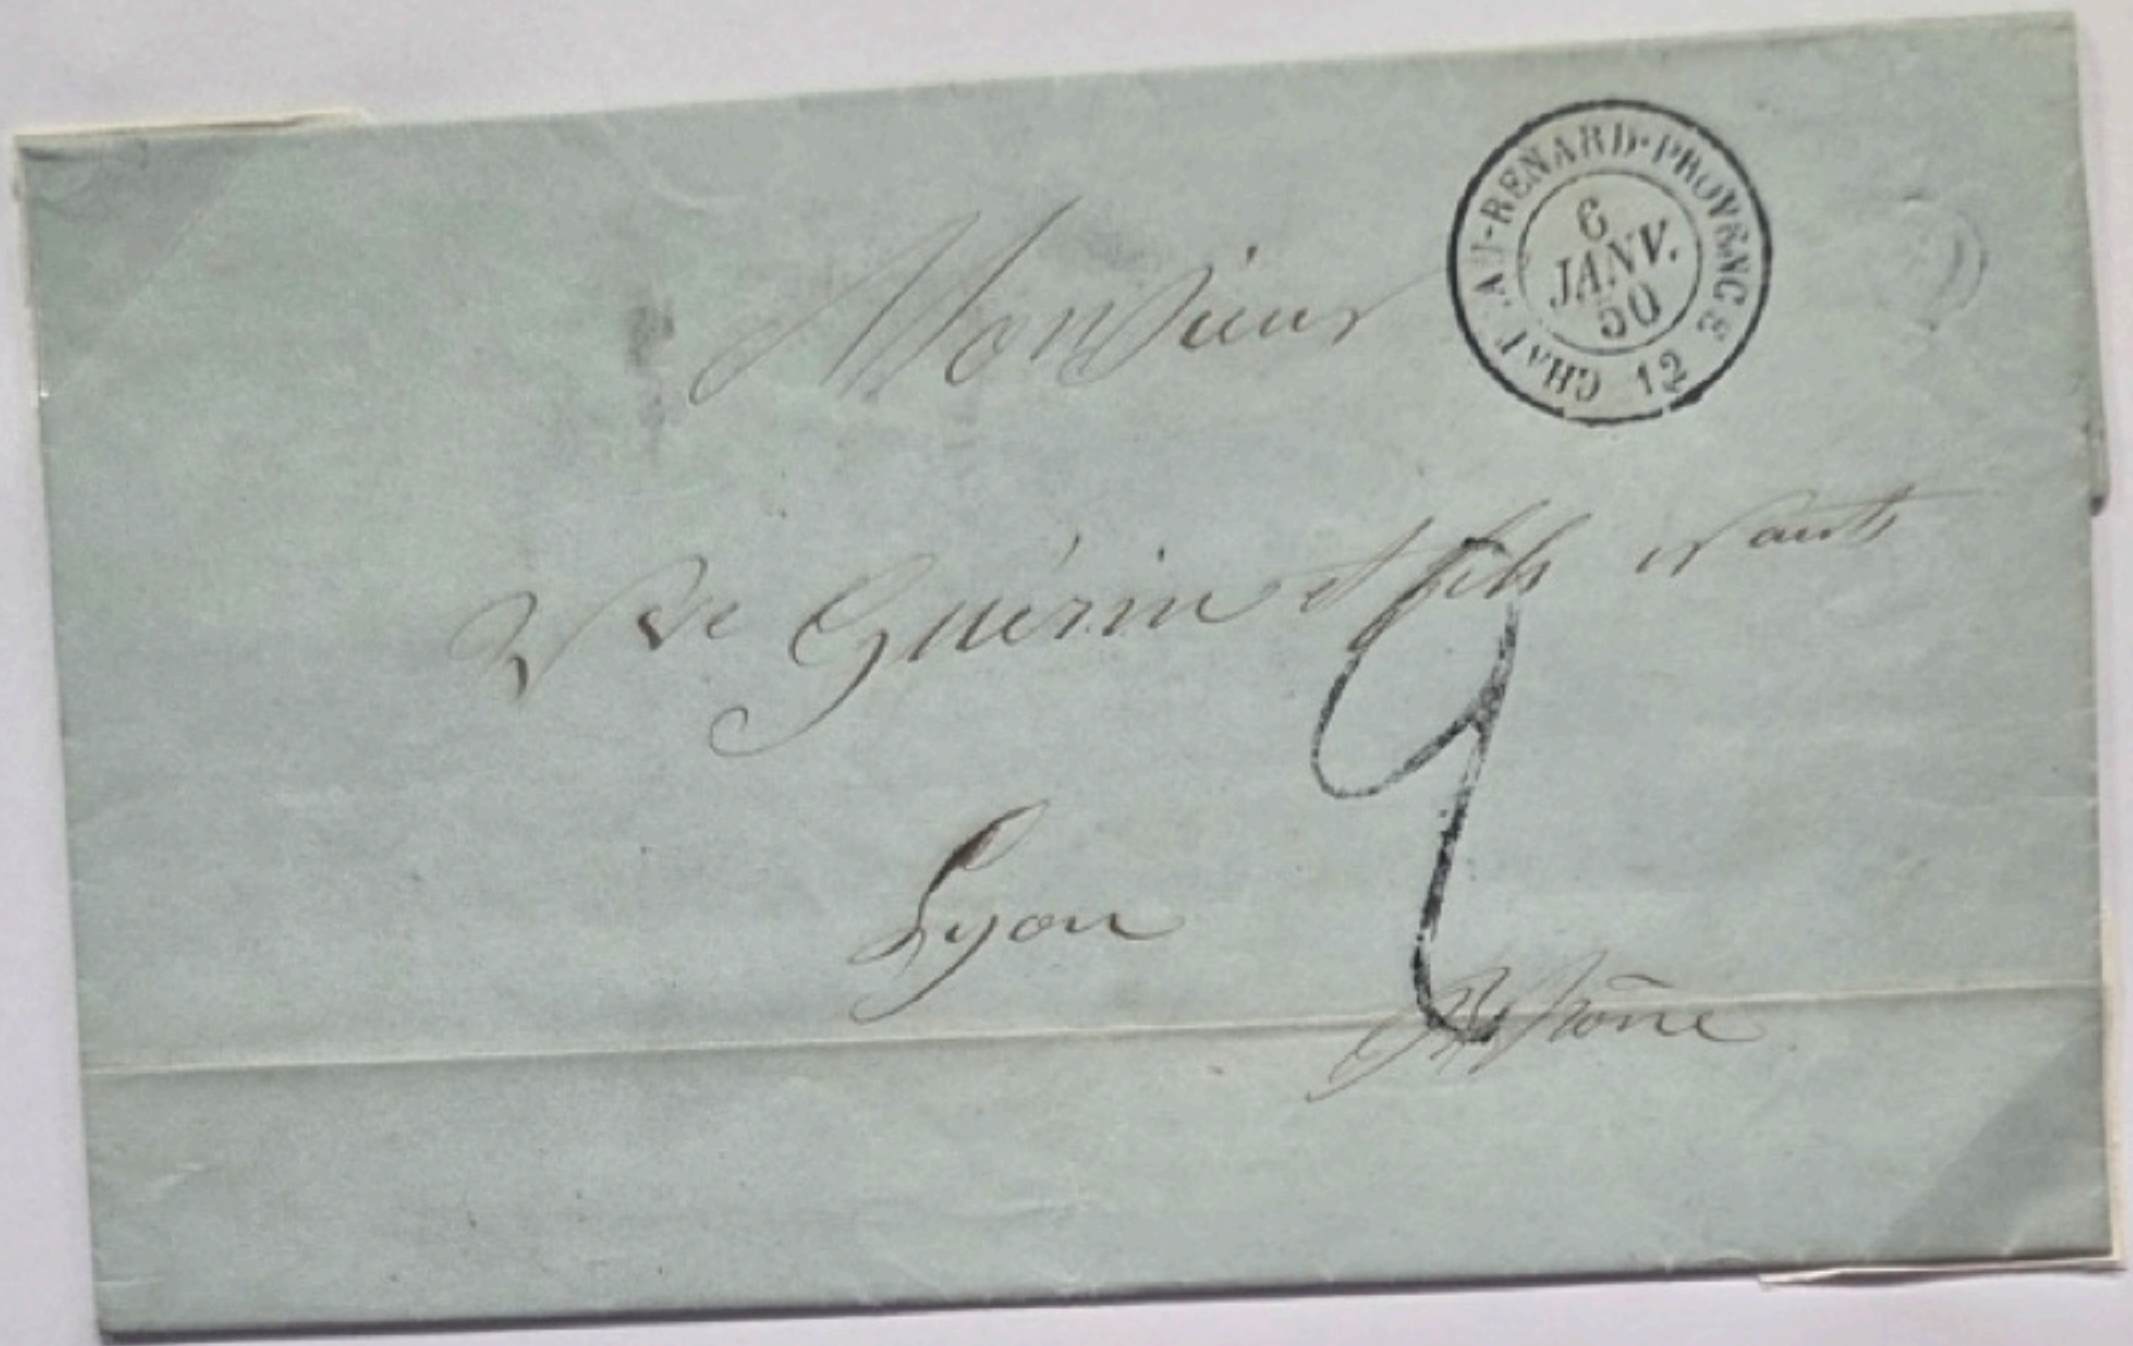 CHATEAU-RENARD-PROVENCE 12
6
JANV.
50
Monsieur
Vve Guérin et fils
2
Lyon
Rhône